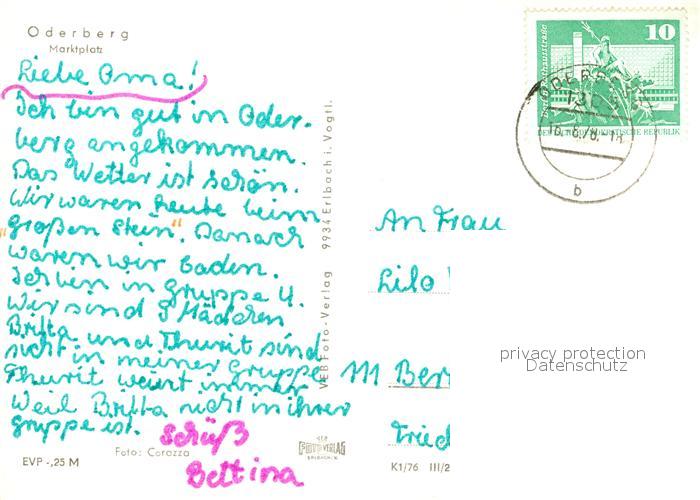 Oderberg
Marktplatz
Liebe Oma!
Ich bin gut in Oder-
berg angekommen.
Das Wetter ist schön.
Wir waren heute beim
"großen Stein". Danach
waren wir baden.
Ich bin in Gruppe 4.
Wir sind 5 Mädchen
Britta und Thurit sind
nicht in meiner Gruppe
Thurit weint immer
Weil Britta nicht in ihrer
gruppe ist.
Schüß
Bettina
EVP -,25 M
Foto: Corazza
VEB Foto-Verlag 9934 Erlbach i. Vogtl.
VEB
FOTO VERLAG
ERLBACH
K1/76 III/2
10
DEUTSCHE DEMOKRATISCHE REPUBLIK
ODERBERG
16.8.78.-18
b
An Frau
Lilo
111 Ber
Fried
privacy protection
Datenschutz